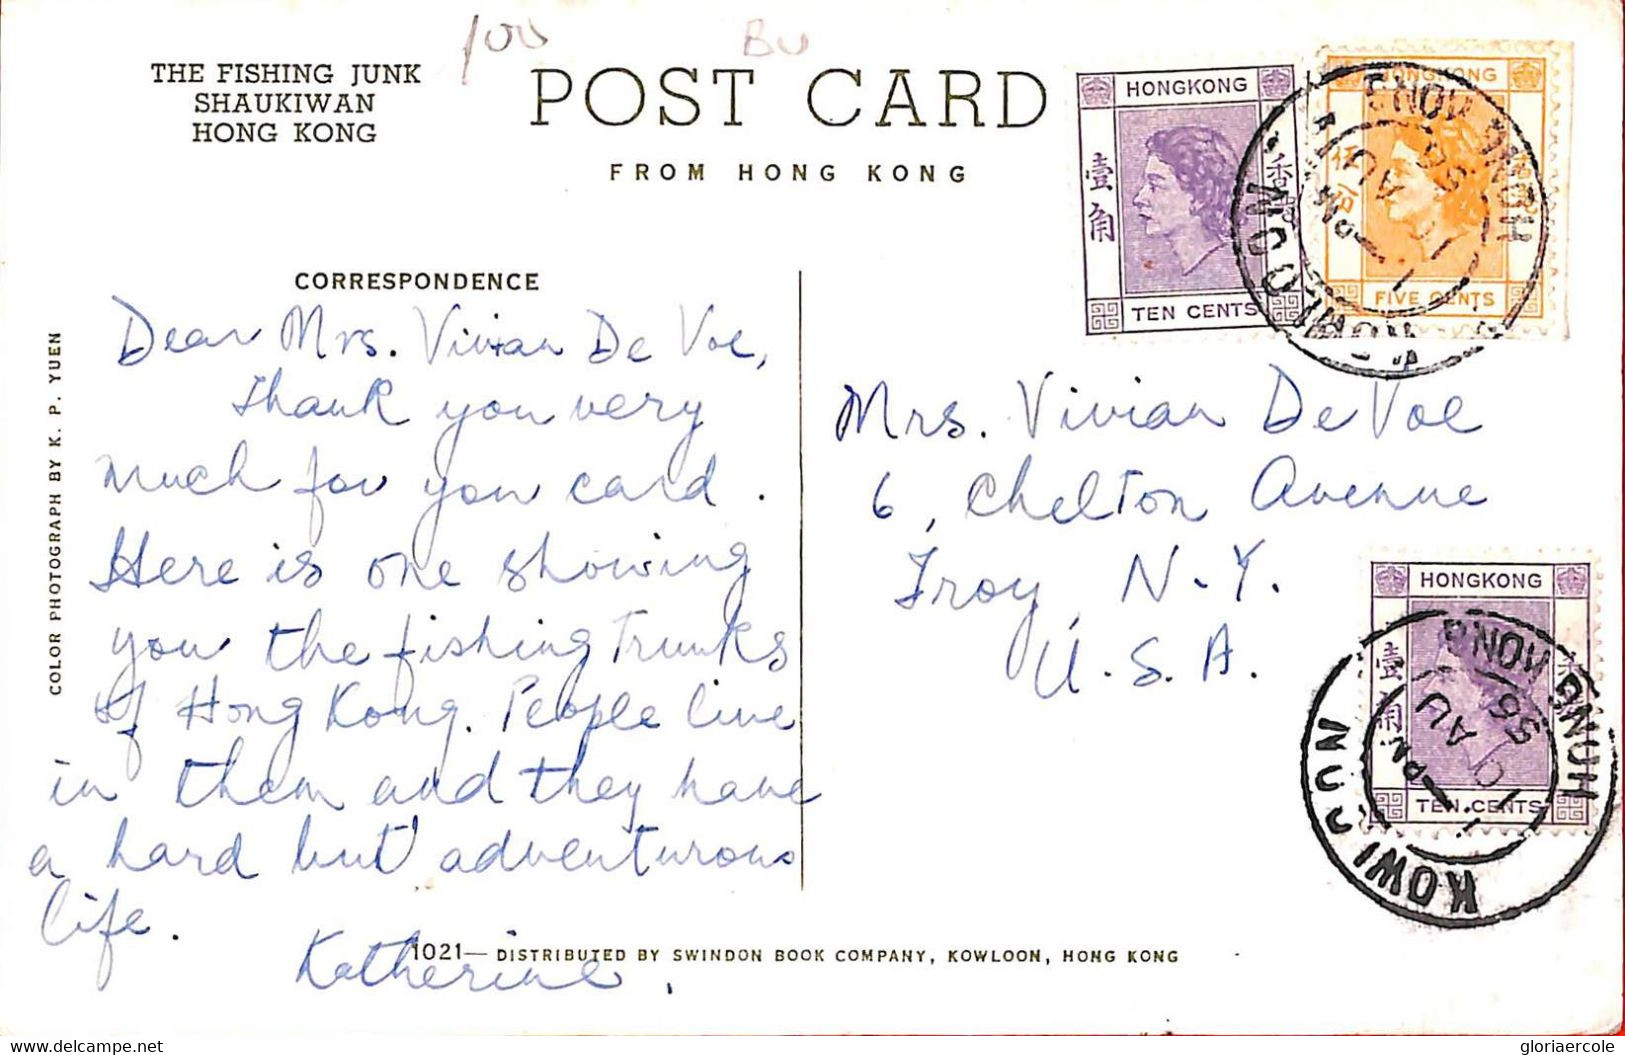 100 BU
THE FISHING JUNK
SHAUKIWAN
HONG KONG
POST CARD
FROM HONG KONG
CORRESPONDENCE
COLOR PHOTOGRAPH BY K. P. YUEN
Dear Mrs. Vivian De Voe,
Thank you very
much for your card.
Here is one showing
you the fishing Trunks
of Hong Kong. People live
in them and they have
a hard but adventurous
life.
Katherine.
1021— DISTRIBUTED BY SWINDON BOOK COMPANY, KOWLOON, HONG KONG
HONGKONG
壹角
TEN CENTS
HONGKONG
伍
FIVE CENTS
HONG KONG
1 - PM
10 AU
56
KOWLOON
Mrs. Vivian De Voe
6, Chelton Avenue
Troy, N.Y.
U.S.A.
HONGKONG
壹角
TEN CENTS
HONG KONG
1 - PM
10 AU
56
KOWLOON
www.delcampe.net
gloriaercole